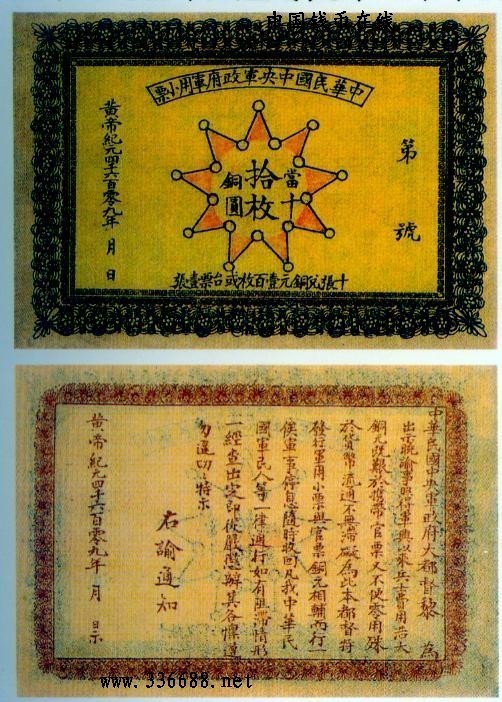 中国钱币在线
中華民國中央軍政府軍用小票
第 號
當十
拾枚
銅圓
黃帝紀元四千六百零九年 月 日
十張兌銅元壹百枚或台票壹張
中華民國中央軍政府大都督黎 為
出示曉諭事照得軍興以來兵士費用浩大
銅元既艱於攜帶官票又不便零用殊
於貨幣流通不無滯礙為此本都督特
發行軍用小票與官票銅元相輔而行一
俟軍事停息隨時收回凡我中華民
國軍民人等一律通行如有阻滯情形
一經查出定即從嚴懲辦其各凜遵
勿違切切特示
右諭通知
黃帝紀元四千六百零九年 月 日示
www.336688.net